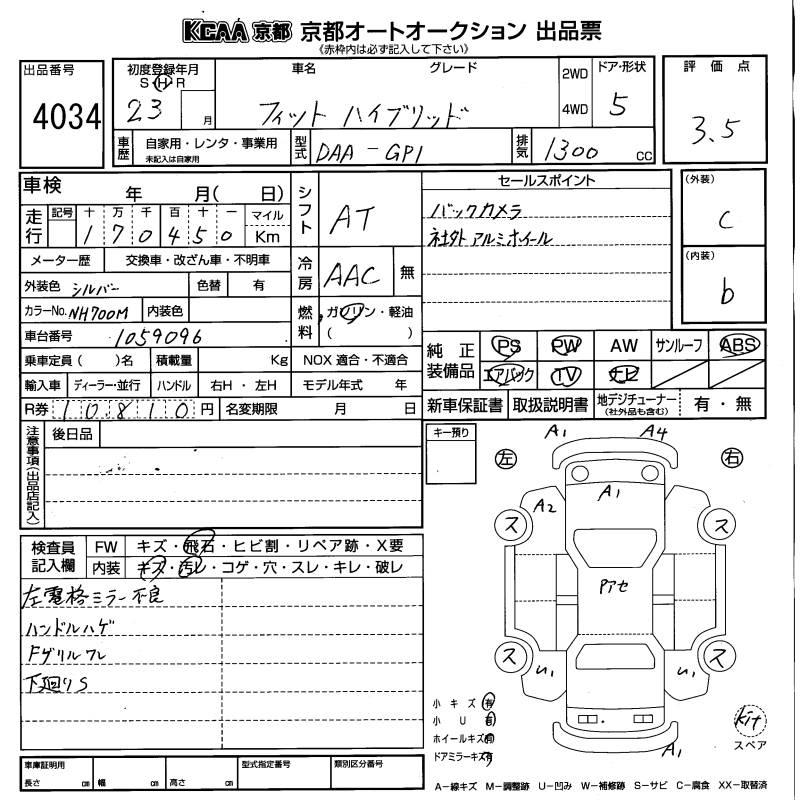 KCAA 京都 京都オートオークション 出品票
《赤枠内は必ず記入して下さい》
出品番号 4034
初度登録年月 S・H・R 23 月
車名 グレード フィット ハイブリッド
2WD 4WD
ドア・形状 5
評価点 3.5
車歴 自家用・レンタ・事業用 未記入は自家用
型式 DAA-GP1
排気 1300 CC
車検 年 月( 日)
走行 記号 十 万 千 百 十 一 マイル Km
170450
シフト AT
冷房 AAC 無
セールスポイント
バックカメラ
社外アルミホイール
(外装) C
(内装) b
メーター歴 交換車・改ざん車・不明車
外装色 シルバー 色替 有
カラーNo. NH700M 内装色
燃料 ガソリン・軽油 ( )
車台番号 1059096
乗車定員( )名 積載量 Kg NOX 適合・不適合
輸入車 ディーラー・並行 ハンドル 右H・左H モデル年式 年
R券 10810 円 名変期限 月 日
純正装備品 PS PW AW サンルーフ ABS
エアバック TV ナビ
新車保証書 取扱説明書 地デジチューナー (社外品も含む) 有・無
注意事項(出品店記入) 後日品
キー預り
左 右
A1 A4
A2 A1
ス ス
Pアセ
ス ス
U1 U1
A1
検査員記入欄 FW キズ・飛石・ヒビ割・リペア跡・X要
内装 キズ・汚レ・コゲ・穴・スレ・キレ・破レ
左電格ミラー不良
ハンドルハゲ
Fグリルワレ
下廻りS
小キズ 有
小U 有
ホイールキズ 有
ドアミラーキズ 有
Kit
スペア
車庫証明用 長さ cm 幅 cm 高さ cm 型式指定番号 類別区分番号
A-線キズ M-調整跡 U-凹み W-補修跡 S-サビ C-腐食 XX-取替済